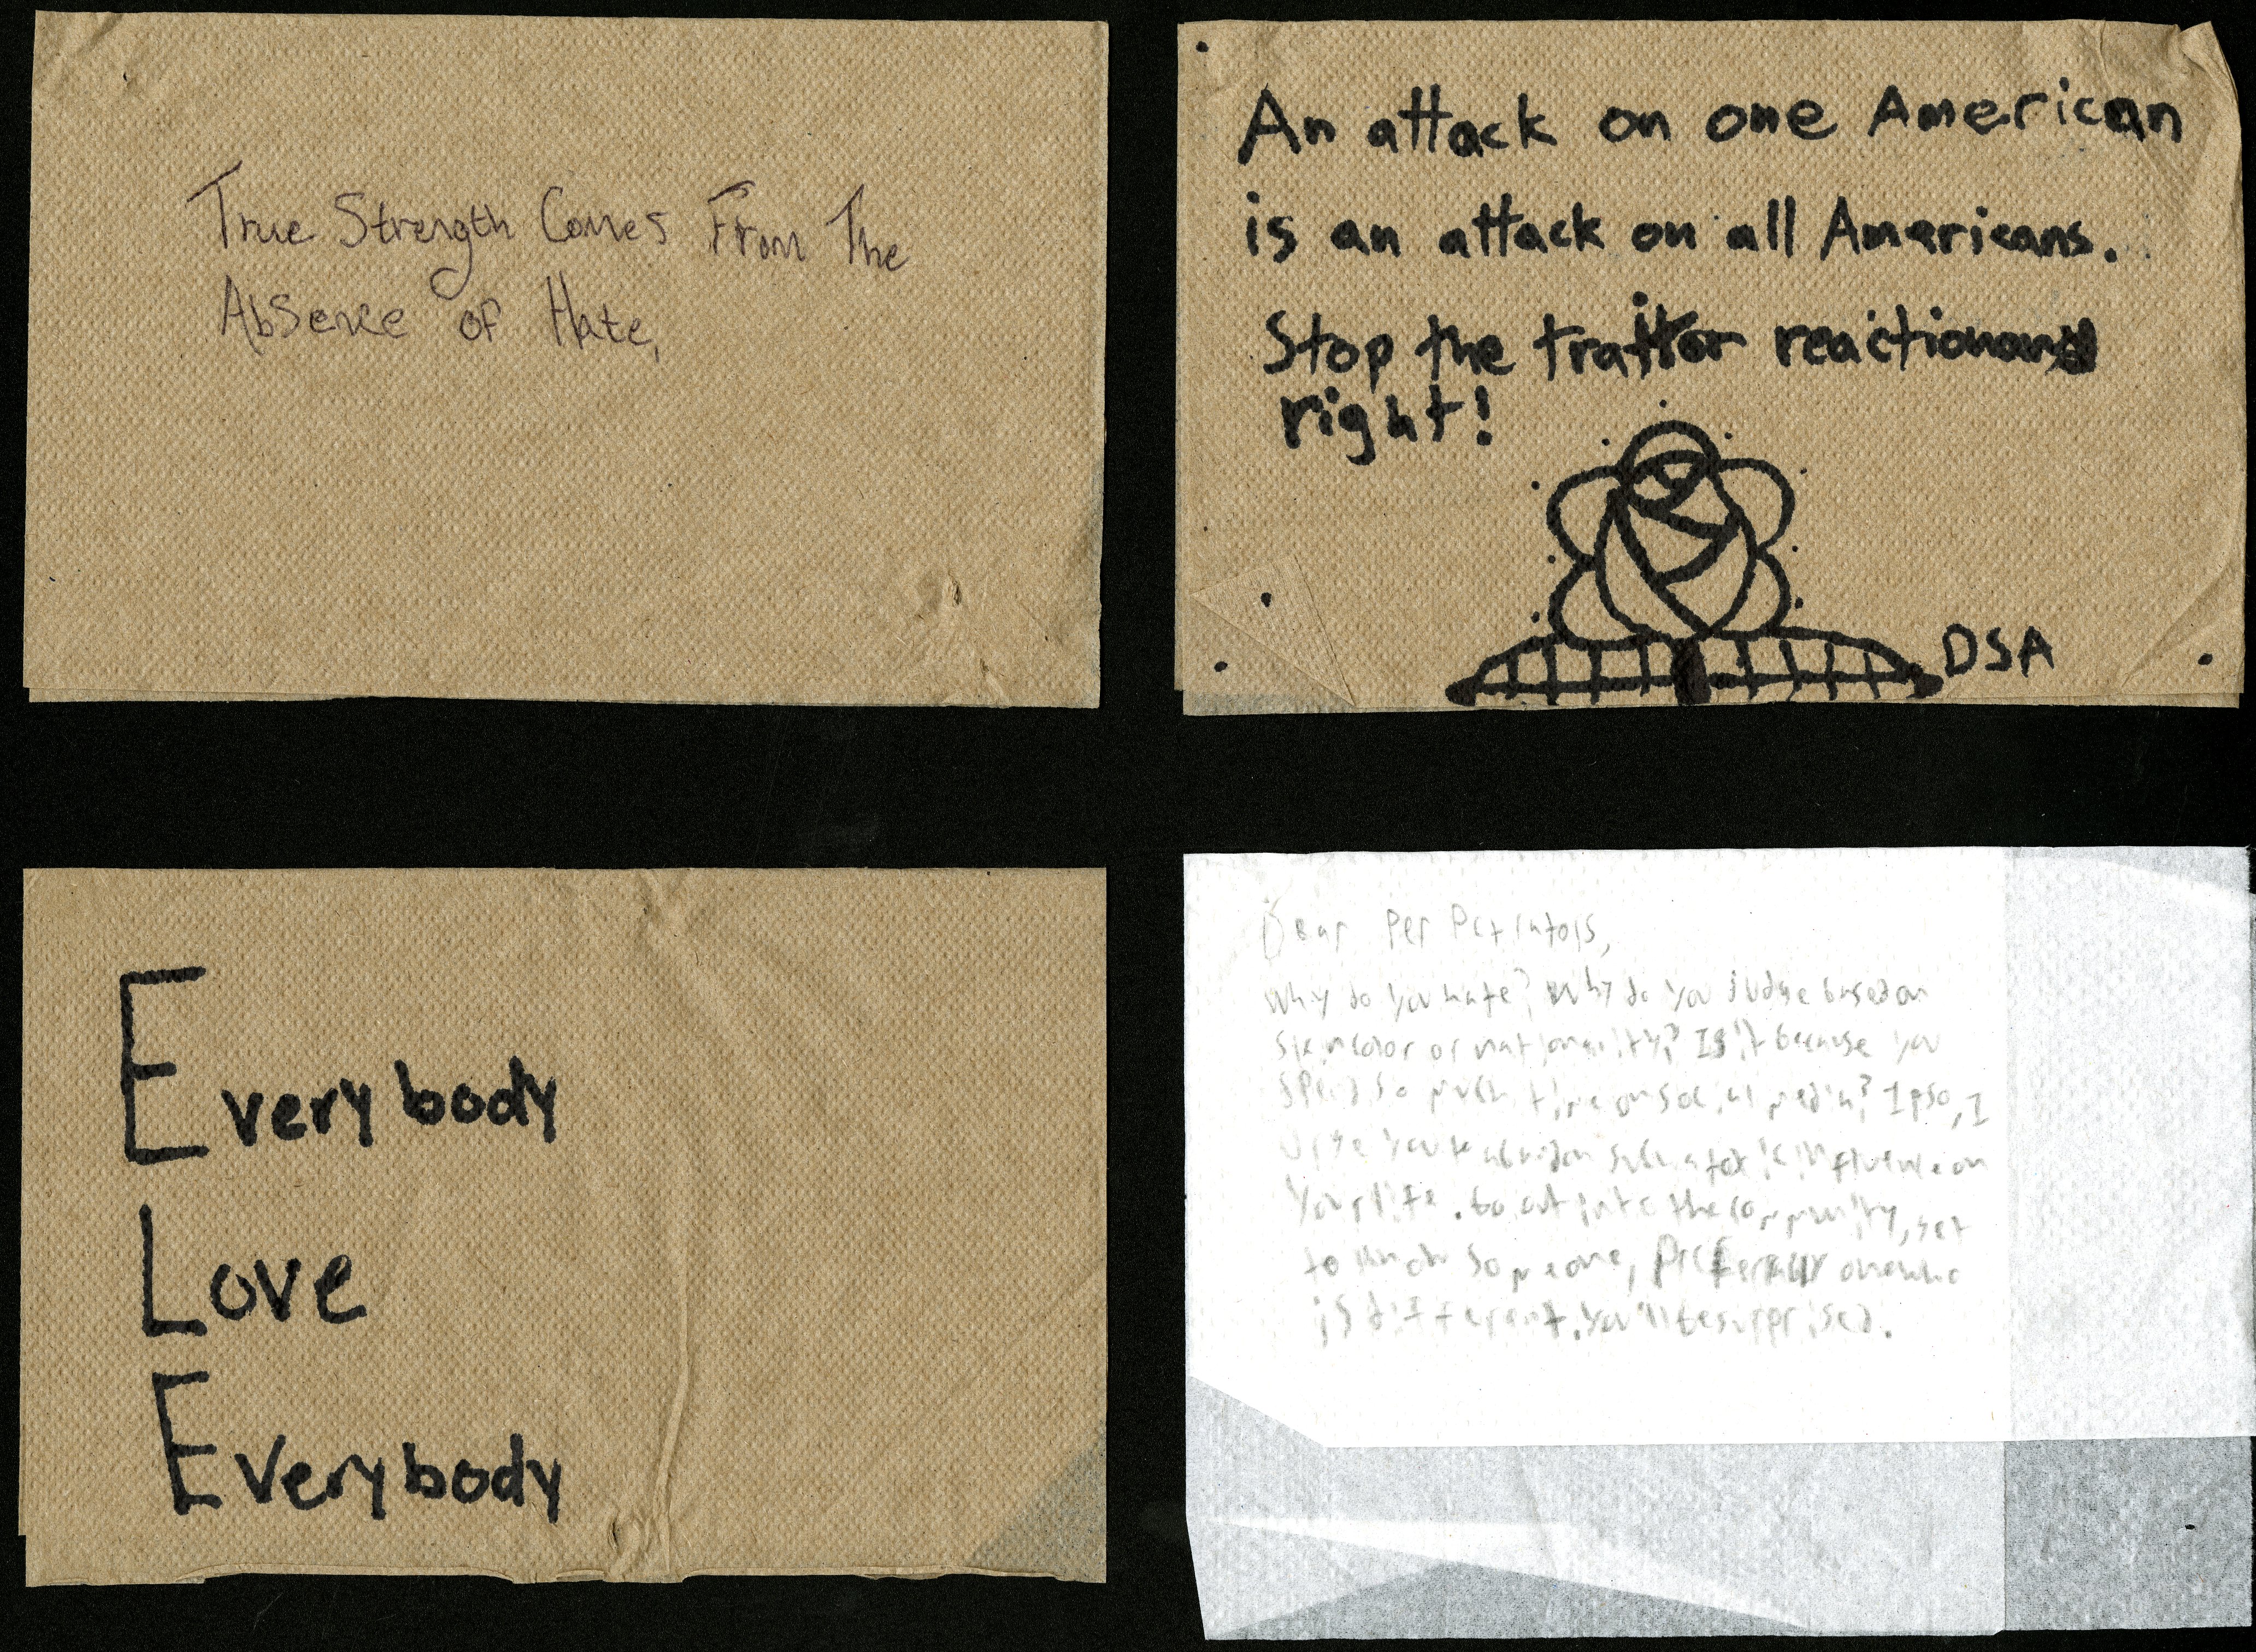 True Strength Comes From The
Absence of Hate.
An attack on one American
is an attack on all Americans.
Stop the traitor reactionary
right!
DSA
Everybody
Love
Everybody
Dear Perpetrators,
Why do you hate? Why do you judge based on
skin color or nationality? Is it because you
spend so much time on social media? If so, I
urge you to abandon such a toxic influence on
your life. Go out into the community, get
to know someone, preferably one who
is different. You'll be surprised.